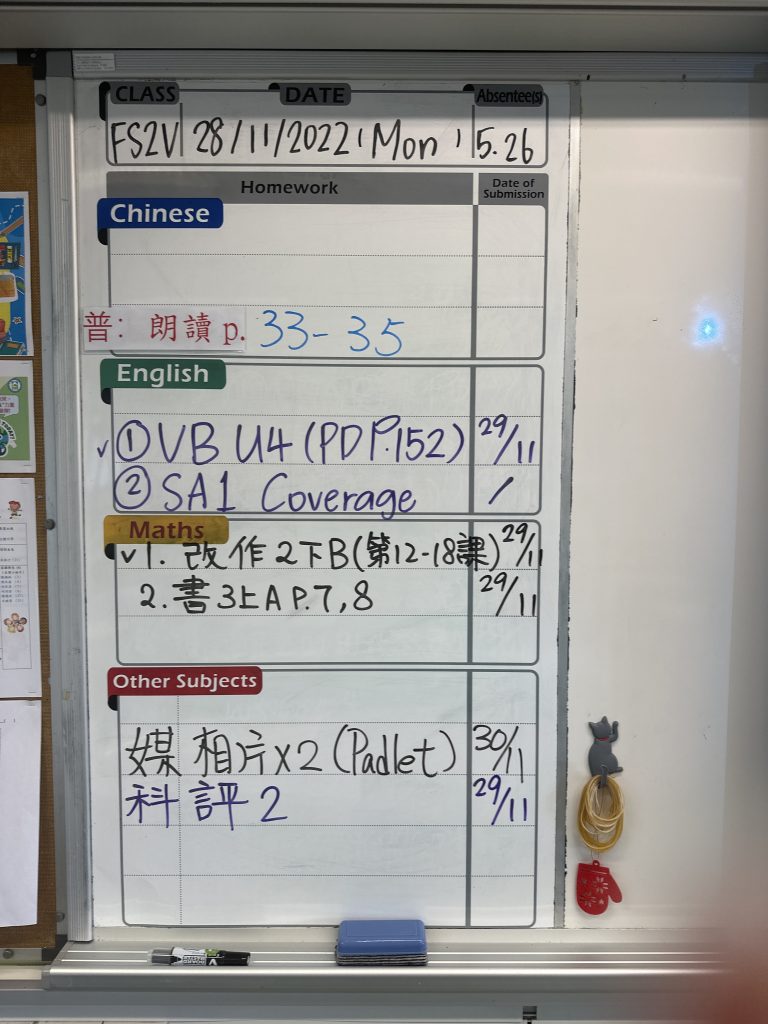 CLASS DATE Absentee(s)
FS2V 28/11/2022 (Mon) 5.26
Homework Date of Submission
Chinese
普: 朗讀 p. 33-35
English
✓ ① VB U4 (PD P.152) 29/11
② SA1 Coverage /
Maths
✓ 1. 改作2下B(第12-18課) 29/11
2. 書3上A P.7,8 29/11
Other Subjects
媒 相片x2 (Padlet) 30/11
科 評2 29/11